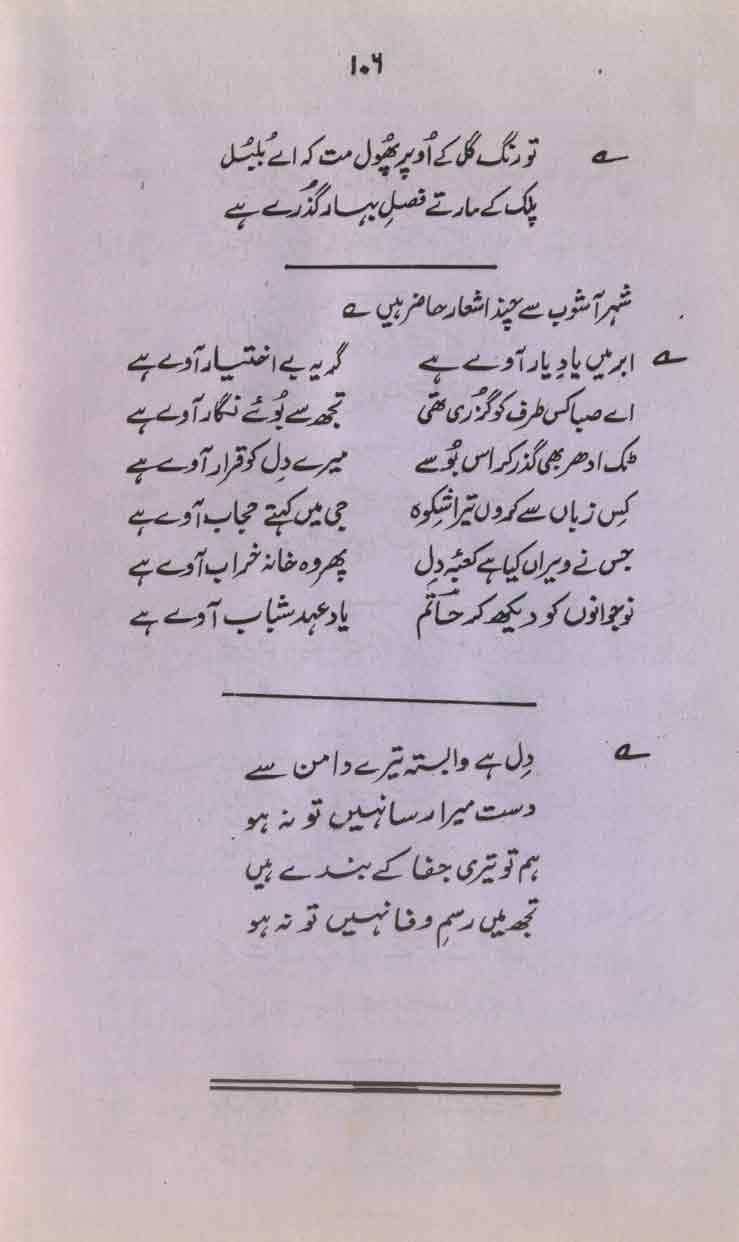 ۱۰۶
تو رنگ گل کے اُوپر پھُول مت کہ اے بُلبُل
پلک کے مارتے فصلِ بہار گذُرے ہے
شہر آشوب سے چند اشعار حاضر ہیں ؎
؎ ابر میں یادِ یار آوے ہے گریہ بے اختیار آوے ہے
اے صبا کس طرف کو گزُری تھی تجھ سے بُوئے نگار آوے ہے
ٹک ادھر بھی گذر کر اس بُو سے میرے دِل کو قرار آوے ہے
کِس زباں سے کروں تیرا شِکوہ جی میں کہتے حجاب آوے ہے
جس نے ویراں کیا ہے کعبۂ دِل پھر وہ خانہ خراب آوے ہے
نوجوانوں کو دیکھ کر حاتم یاد عہد شباب آوے ہے
؎ دِل ہے وابستہ تیرے دامن سے
دست میرا رسا نہیں تو نہ ہو
ہم تو تیری جفا کے بندے ہیں
تجھ میں رسمِ وفا نہیں تو نہ ہو